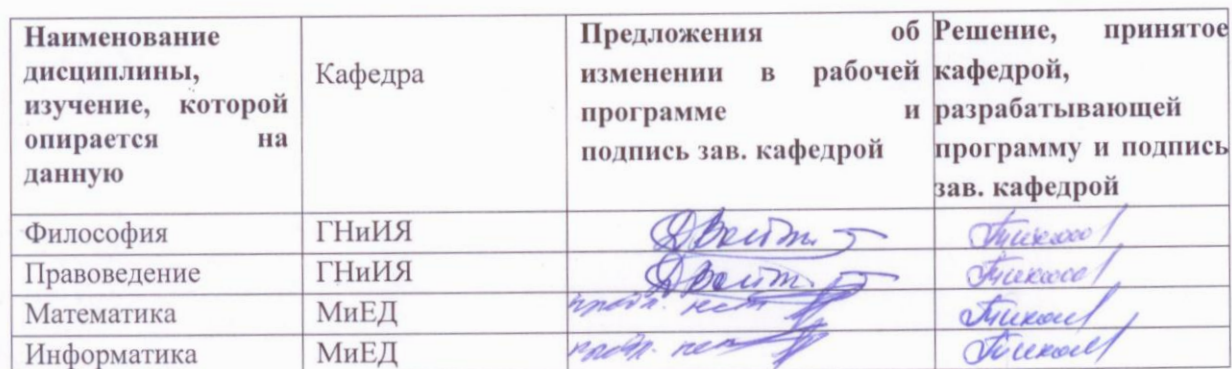 Наименование
дисциплины,
изучение, которой
опирается на
данную
Кафедра
Предложения об
изменении в рабочей
программе и
подпись зав. кафедрой
Решение, принятое
кафедрой,
разрабатывающей
программу и подпись
зав. кафедрой
Философия ГНиИЯ
Правоведение ГНиИЯ
Математика МиЕД предл. нет
Информатика МиЕД предл. нет